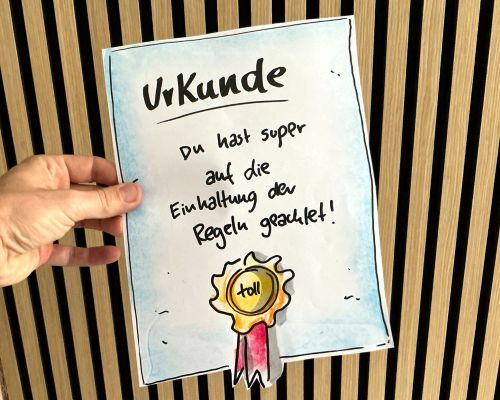 Urkunde
Du hast super
auf die
Einhaltung der
Regeln geachtet!
toll